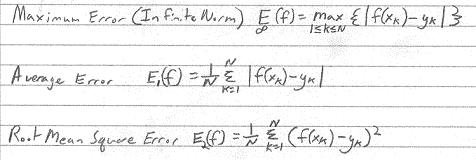 Maximum Error (Infinite Norm) E∞(f) = max 1≤k≤N {|f(xₖ)-yₖ|}
Average Error E₁(f) = 1/N Σ k=1 N |f(xₖ)-yₖ|
Root Mean Square Error E₂(f) = 1/N Σ k=1 N (f(xₖ)-yₖ)²